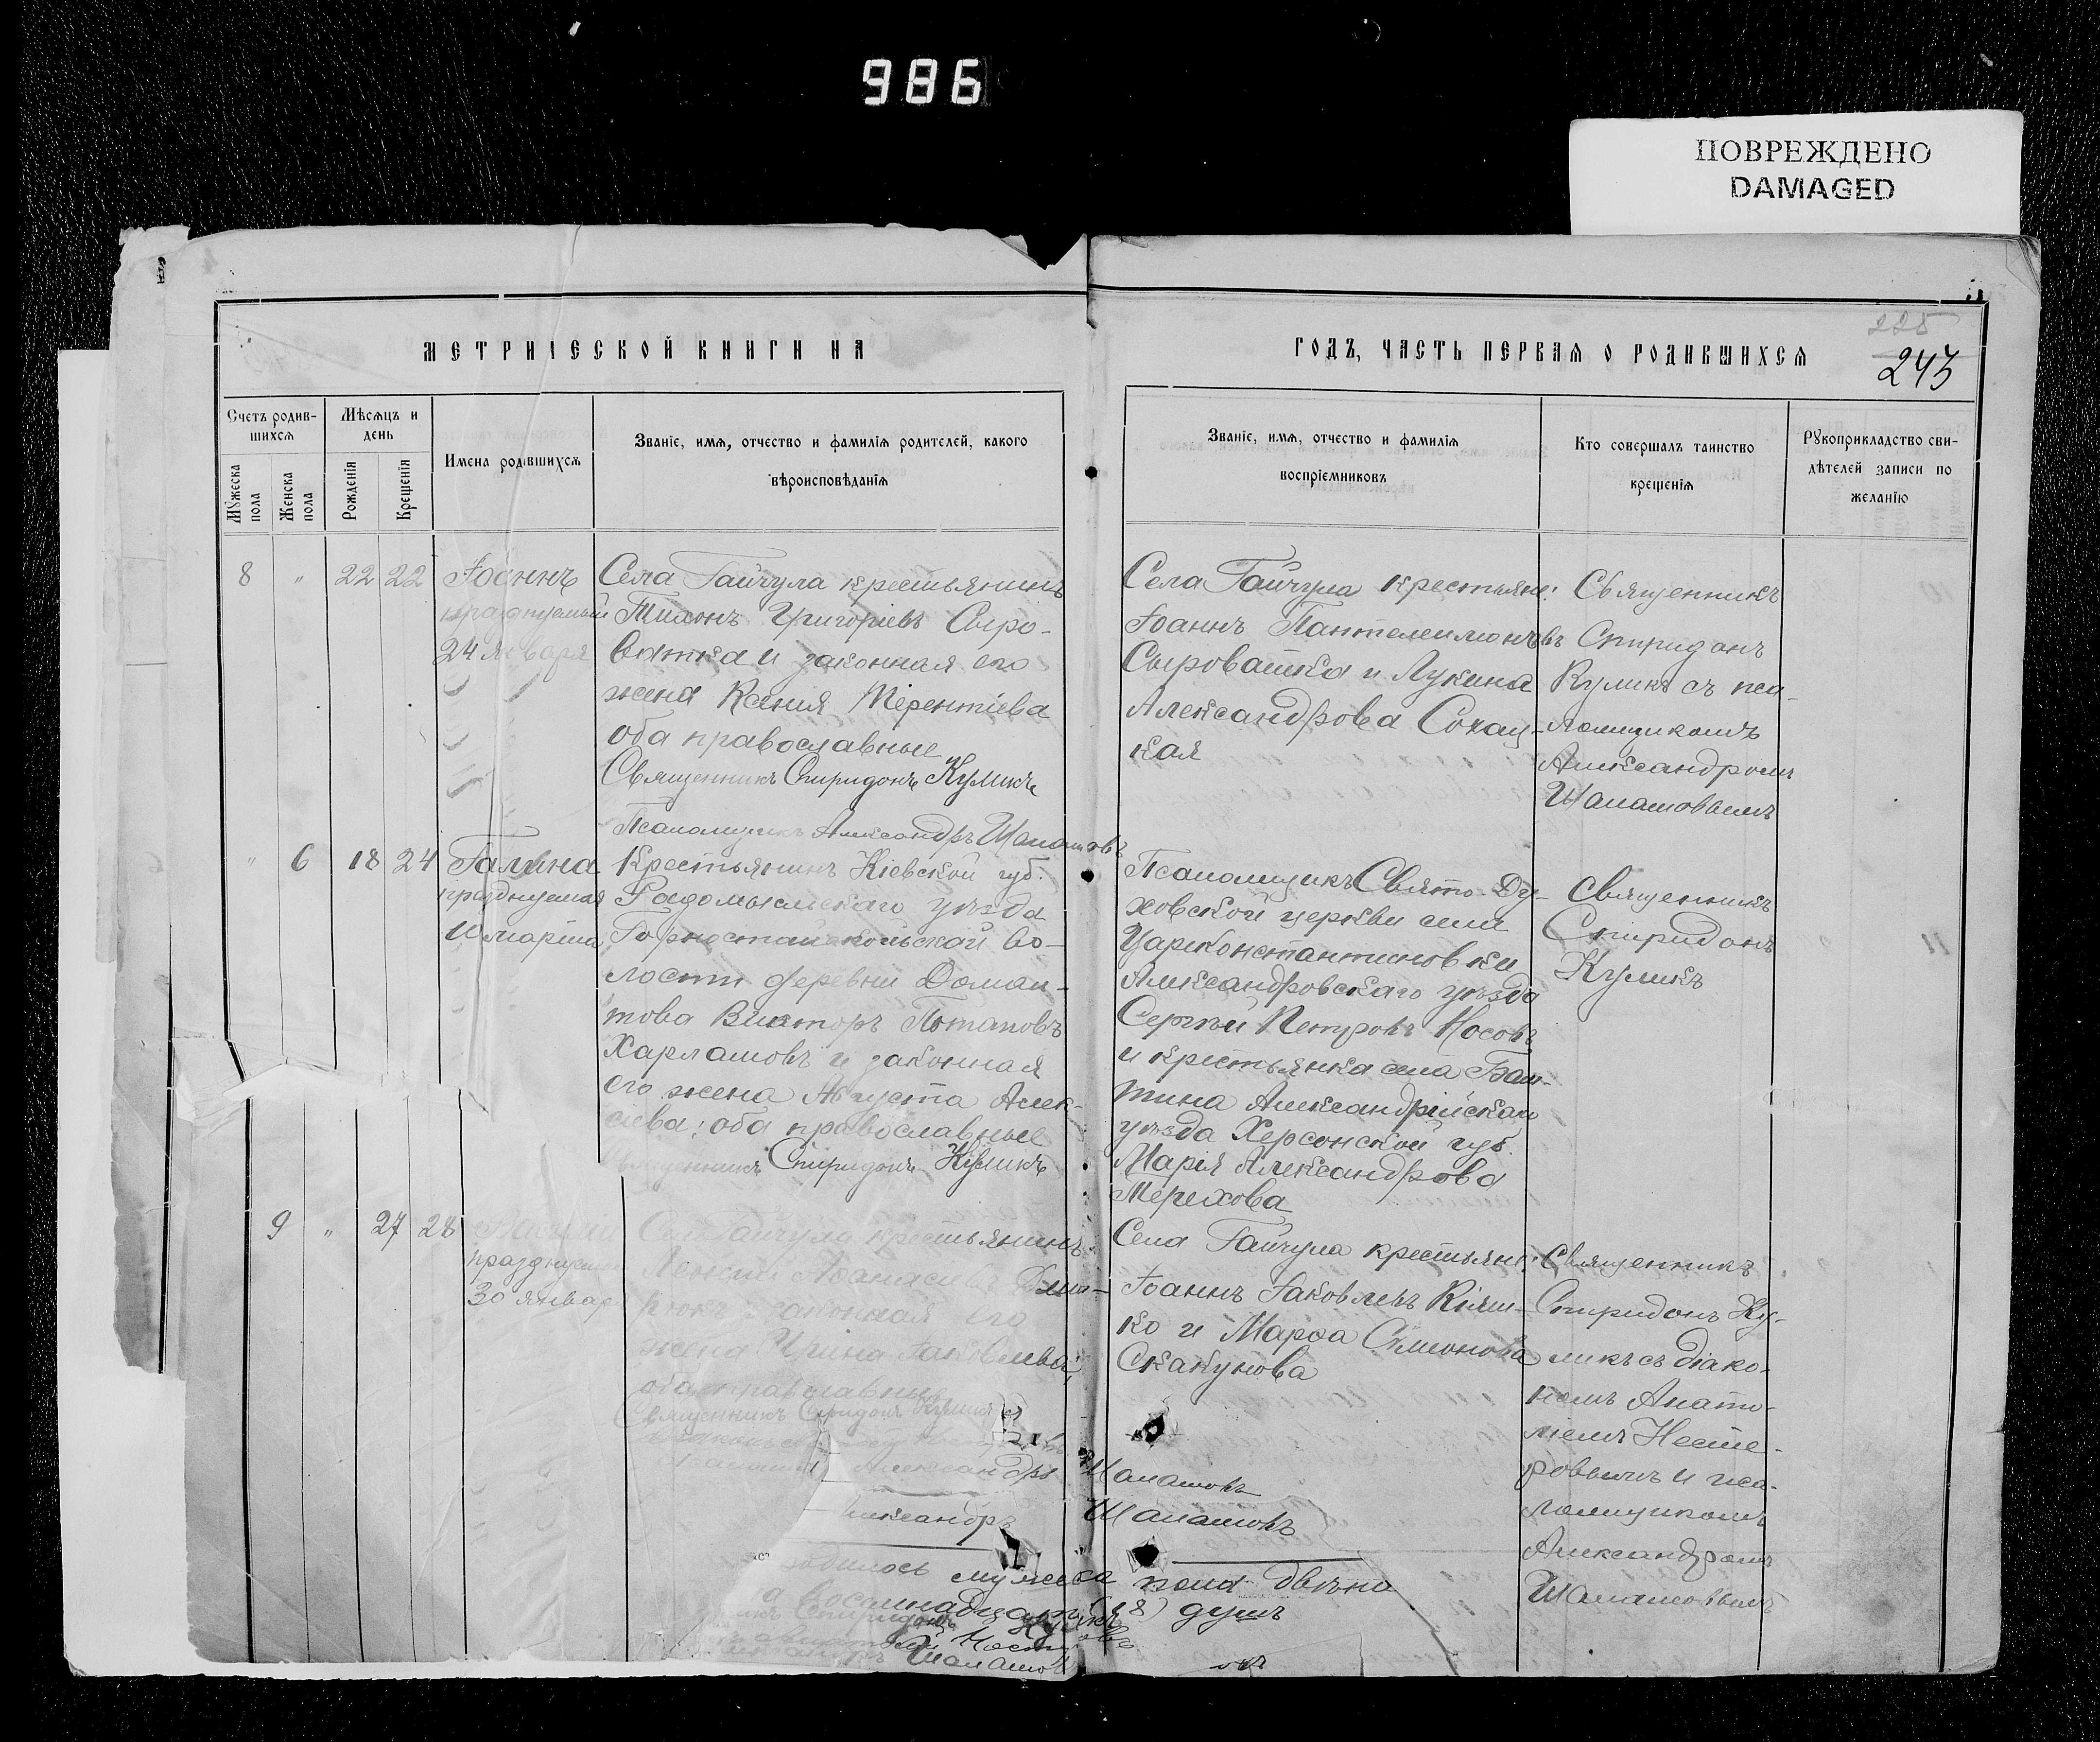 986
ПОВРЕЖДЕНО
DAMAGED
225
243
МЕТРИЧЕСКОЙ КНИГИ НА
ГОДЪ, ЧАСТЬ ПЕРВАЯ О РОДИВШИХСЯ
Счетъ родив-
шихся
Мѣсяцъ и
день
Мужеска
пола
Женска
пола
Рожденія
Крещенія
Имена родившихся
Званіе, имя, отчество и фамилія родителей, какого
вѣроисповѣданія
Званіе, имя, отчество и фамилія
воспріемниковъ
Кто совершалъ таинство
крещенія
Рукоприкладство сви-
дѣтелей записи по
желанію
8 " 22 22
Іоаннъ
празднуемый
24 января
Села Гайчула крестьянинъ
Тихонъ Григоріевъ Сыро-
ватка и законная его
жена Ксенія Терентіева
оба православные
Священникъ Спиридонъ Куликъ
Псаломщикъ Александръ Шаламовъ
Села Гайчула крестьяне:
Іоаннъ Пантелеимоновъ
Сыроватка и Лукина
Александрова Сохац-
кая
Священникъ
Спиридонъ
Куликъ съ пса-
ломщикомъ
Александромъ
Шаламовымъ
" 6 18 24
Галина
празднуемая
10 марта
Крестьянинъ Кіевской губ.
Радомысльскаго уѣзда
Горностайпольской во-
лости деревни Доман-
това Викторъ Потаповъ
Харламовъ и законная
его жена Августа Алек-
сѣева; оба православные
Священникъ Спиридонъ Куликъ
Псаломщикъ Свято-Ду-
ховской церкви села
Цареконстантиновки
Александровскаго уѣзда
Сергѣй Петровъ Носовъ
и крестьянка села
Александрійскаго
уѣзда Херсонской губ.
Марія Александрова
Мерехова
Священникъ
Спиридонъ
Куликъ
9 " 27 28
празднуемый
30 январ
Села Гайчула крестьянинъ
законная его
жена Ирина Іаковлева;
оба православные
Священникъ Спиридонъ Куликъ
Александръ Шаламовъ
Александръ Шаламовъ
Села Гайчула крестьяне:
Іоаннъ Іаковлевъ Кияш-
ко и Марѳа Симонова
Скакунова
Священникъ
Спиридонъ Ку-
ликъ съ діако-
номъ Анато-
ліемъ Несте-
ровымъ и пса-
ломщикомъ
Александромъ
Шаламовымъ
родилось мужеска пола двѣна
а восемнадцать (18) душъ
Спиридонъ Куликъ
Шаламовъ